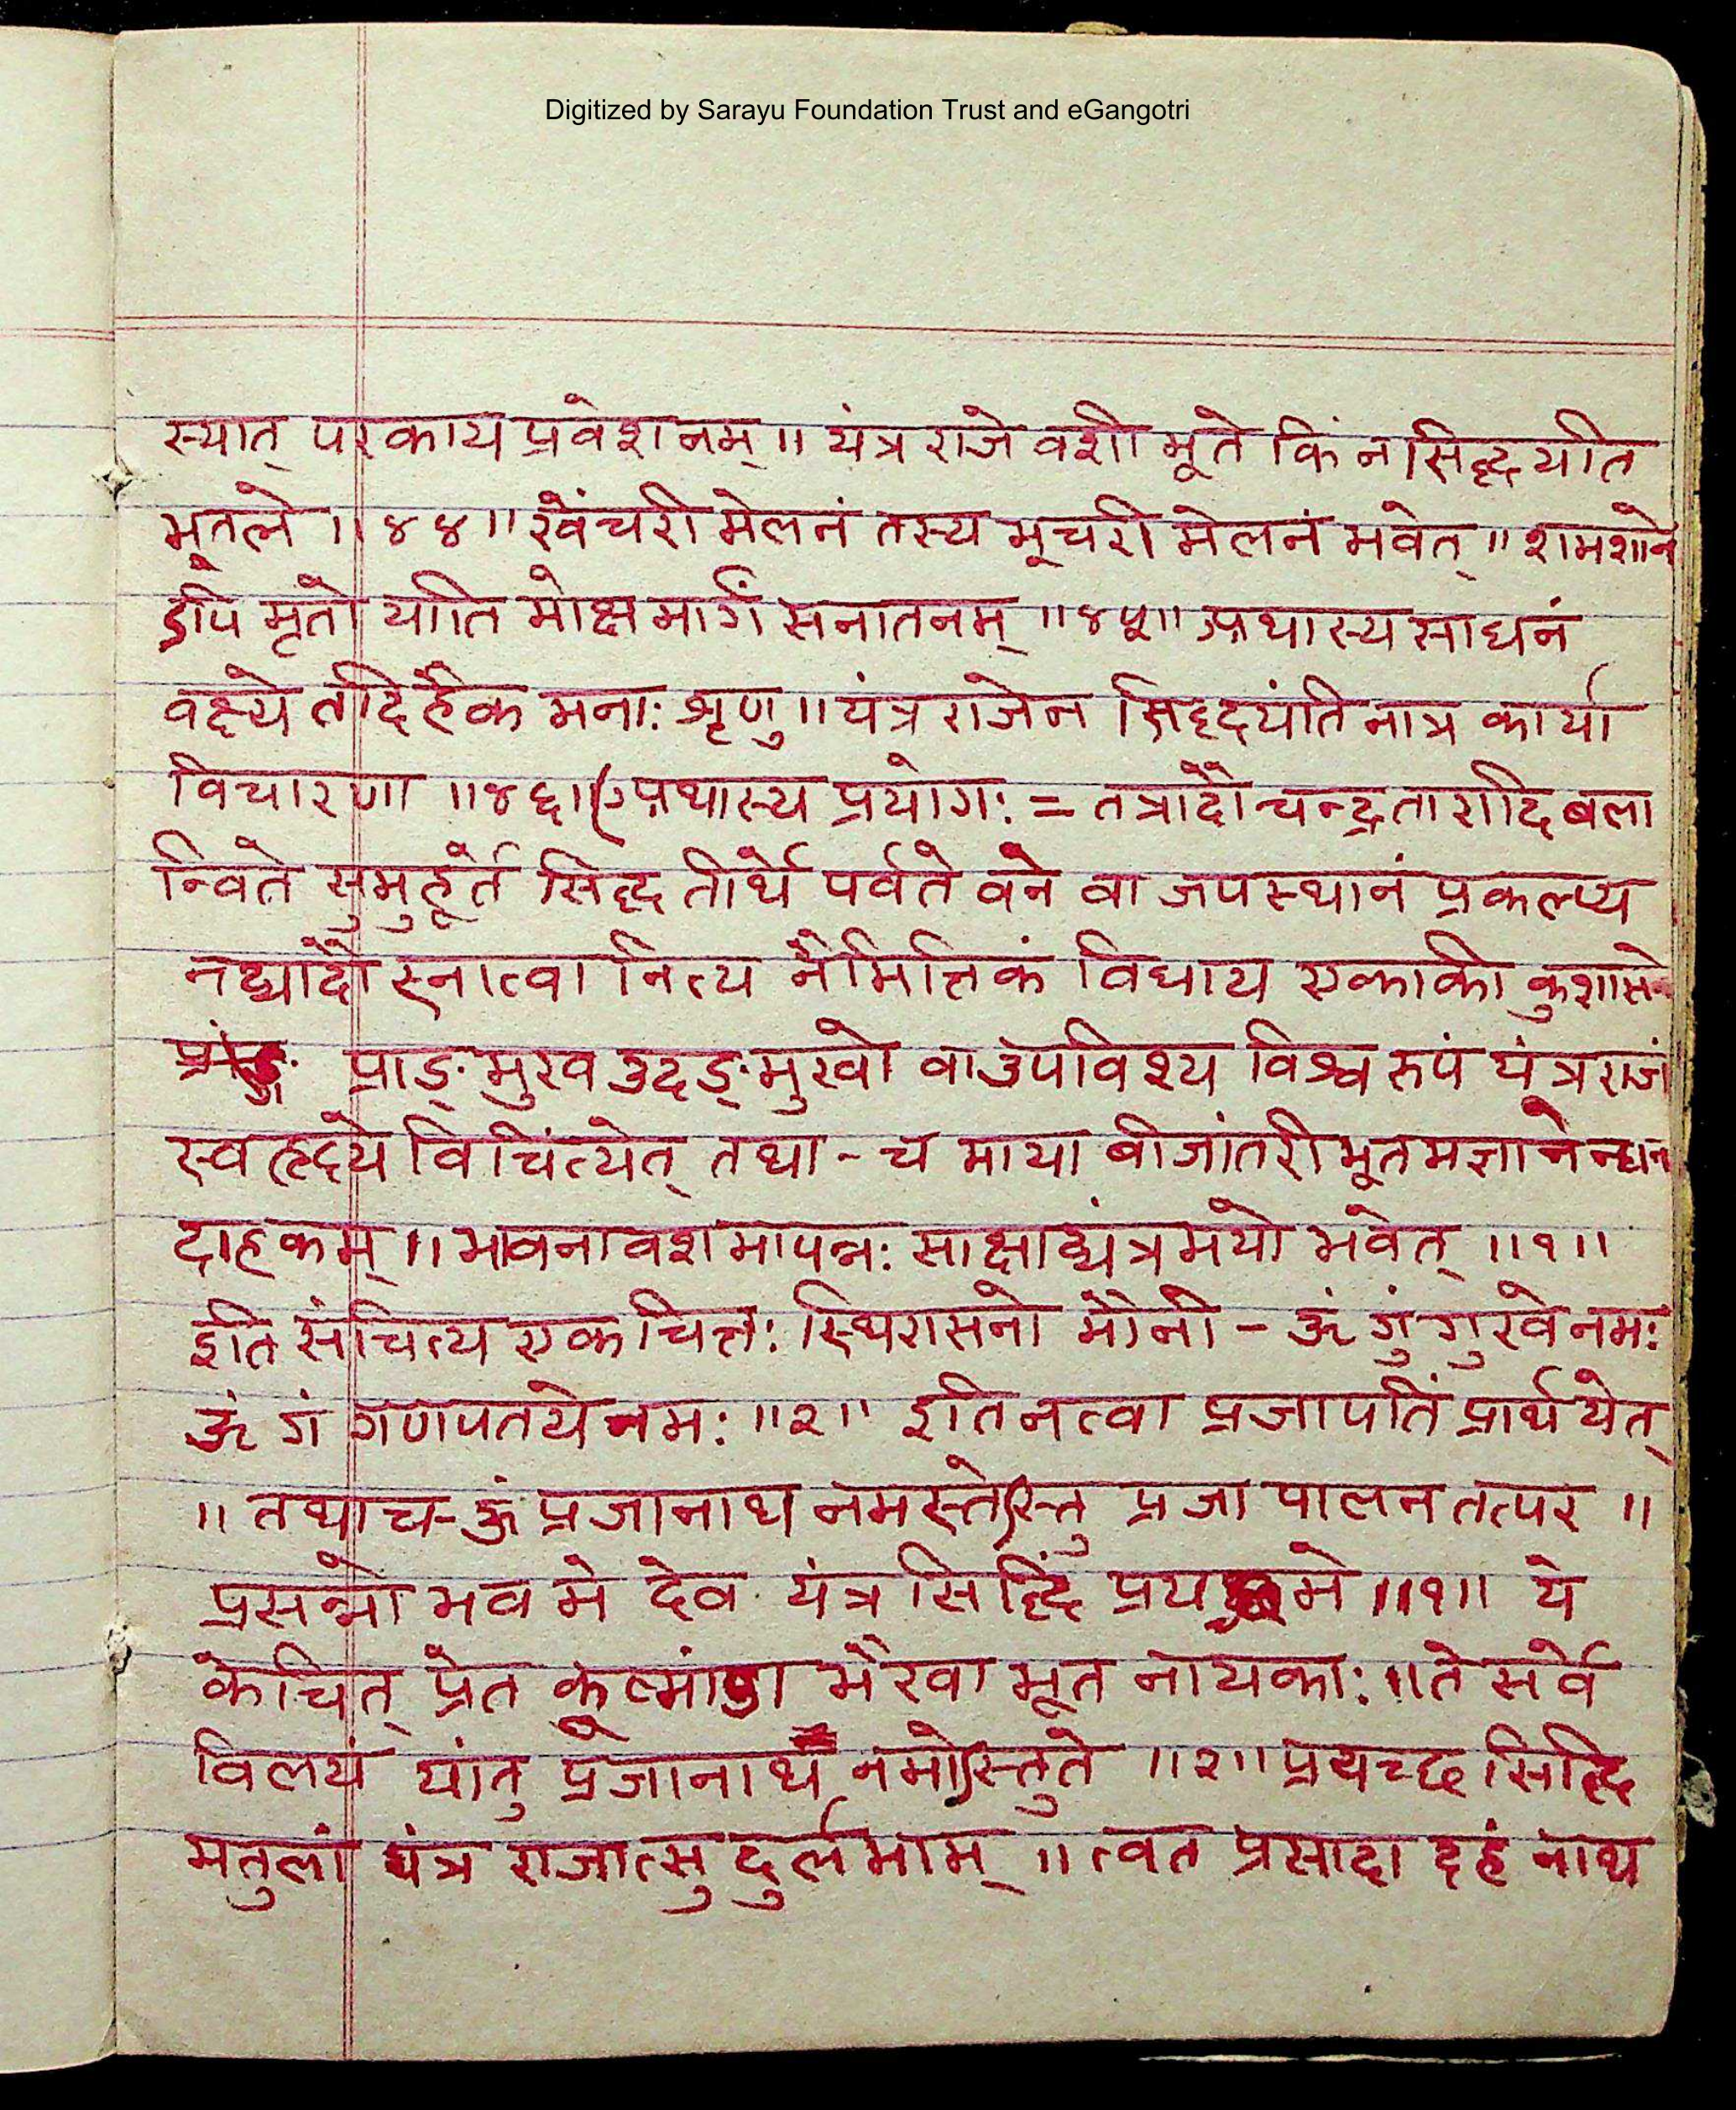 Digitized by Sarayu Foundation Trust and eGangotri
स्यात् परकाय प्रवेशनम् ॥ यंत्र राजे वशी भूते किं न सिद्ध्यति
भूतले ॥४४॥ खेंचरी मेलनं तस्य भूचरी मेलनं भवेत् ॥ शमशाने
ऽपि मृतो याति मोक्ष मार्गं सनातनम् ॥४५॥ अथास्य साधनं
वक्ष्ये तदिहैक मनाः श्रृणु ॥ यंत्र राजेन सिद्ध्यंति नात्र कार्या
विचारणा ॥४६॥ (अथास्य प्रयोगः = तत्रादौ चन्द्रतारादि बला
न्विते सुमुहूर्ते सिद्ध तीर्थे पर्वते वने वा जपस्थानं प्रकल्प्य
नद्यादौ स्नात्वा नित्य नैमित्तिकं विधाय एकाकी कुशासने
प्राङ्मुख उदङ्मुखो वा उपविश्य विश्व रुपं यंत्र राजं
स्वहृदये विचिंत्येत् तथा - च माया बीजांतरी भूतमज्ञानेन्धन
दाहकम् ॥ भावनावशमापन्नः साक्षाद्यंत्रमयो भवेत् ॥१॥
इति संचिंत्य एकचित्तः स्थिरासनो मौनी - ॐ गुं गुरवे नमः
ॐ गं गणपतये नमः ॥२॥ इति नत्वा प्रजापतिं प्रार्थयेत्
॥ तथाच - ॐ प्रजानाथ नमस्तेऽस्तु प्रजा पालन तत्पर ॥
प्रसन्नो भव मे देव यंत्र सिद्धिं प्रय मे ॥१॥ ये
केचित् प्रेत कूष्मांडा भैरवा भूत नायकाः ॥ ते सर्वे
विलयं यांतु प्रजानाथ नमोऽस्तुते ॥२॥ प्रयच्छ सिद्धि
मतुलां यंत्र राजात्सु दुर्लभाम् ॥ त्वत प्रसादा दहं नाथ